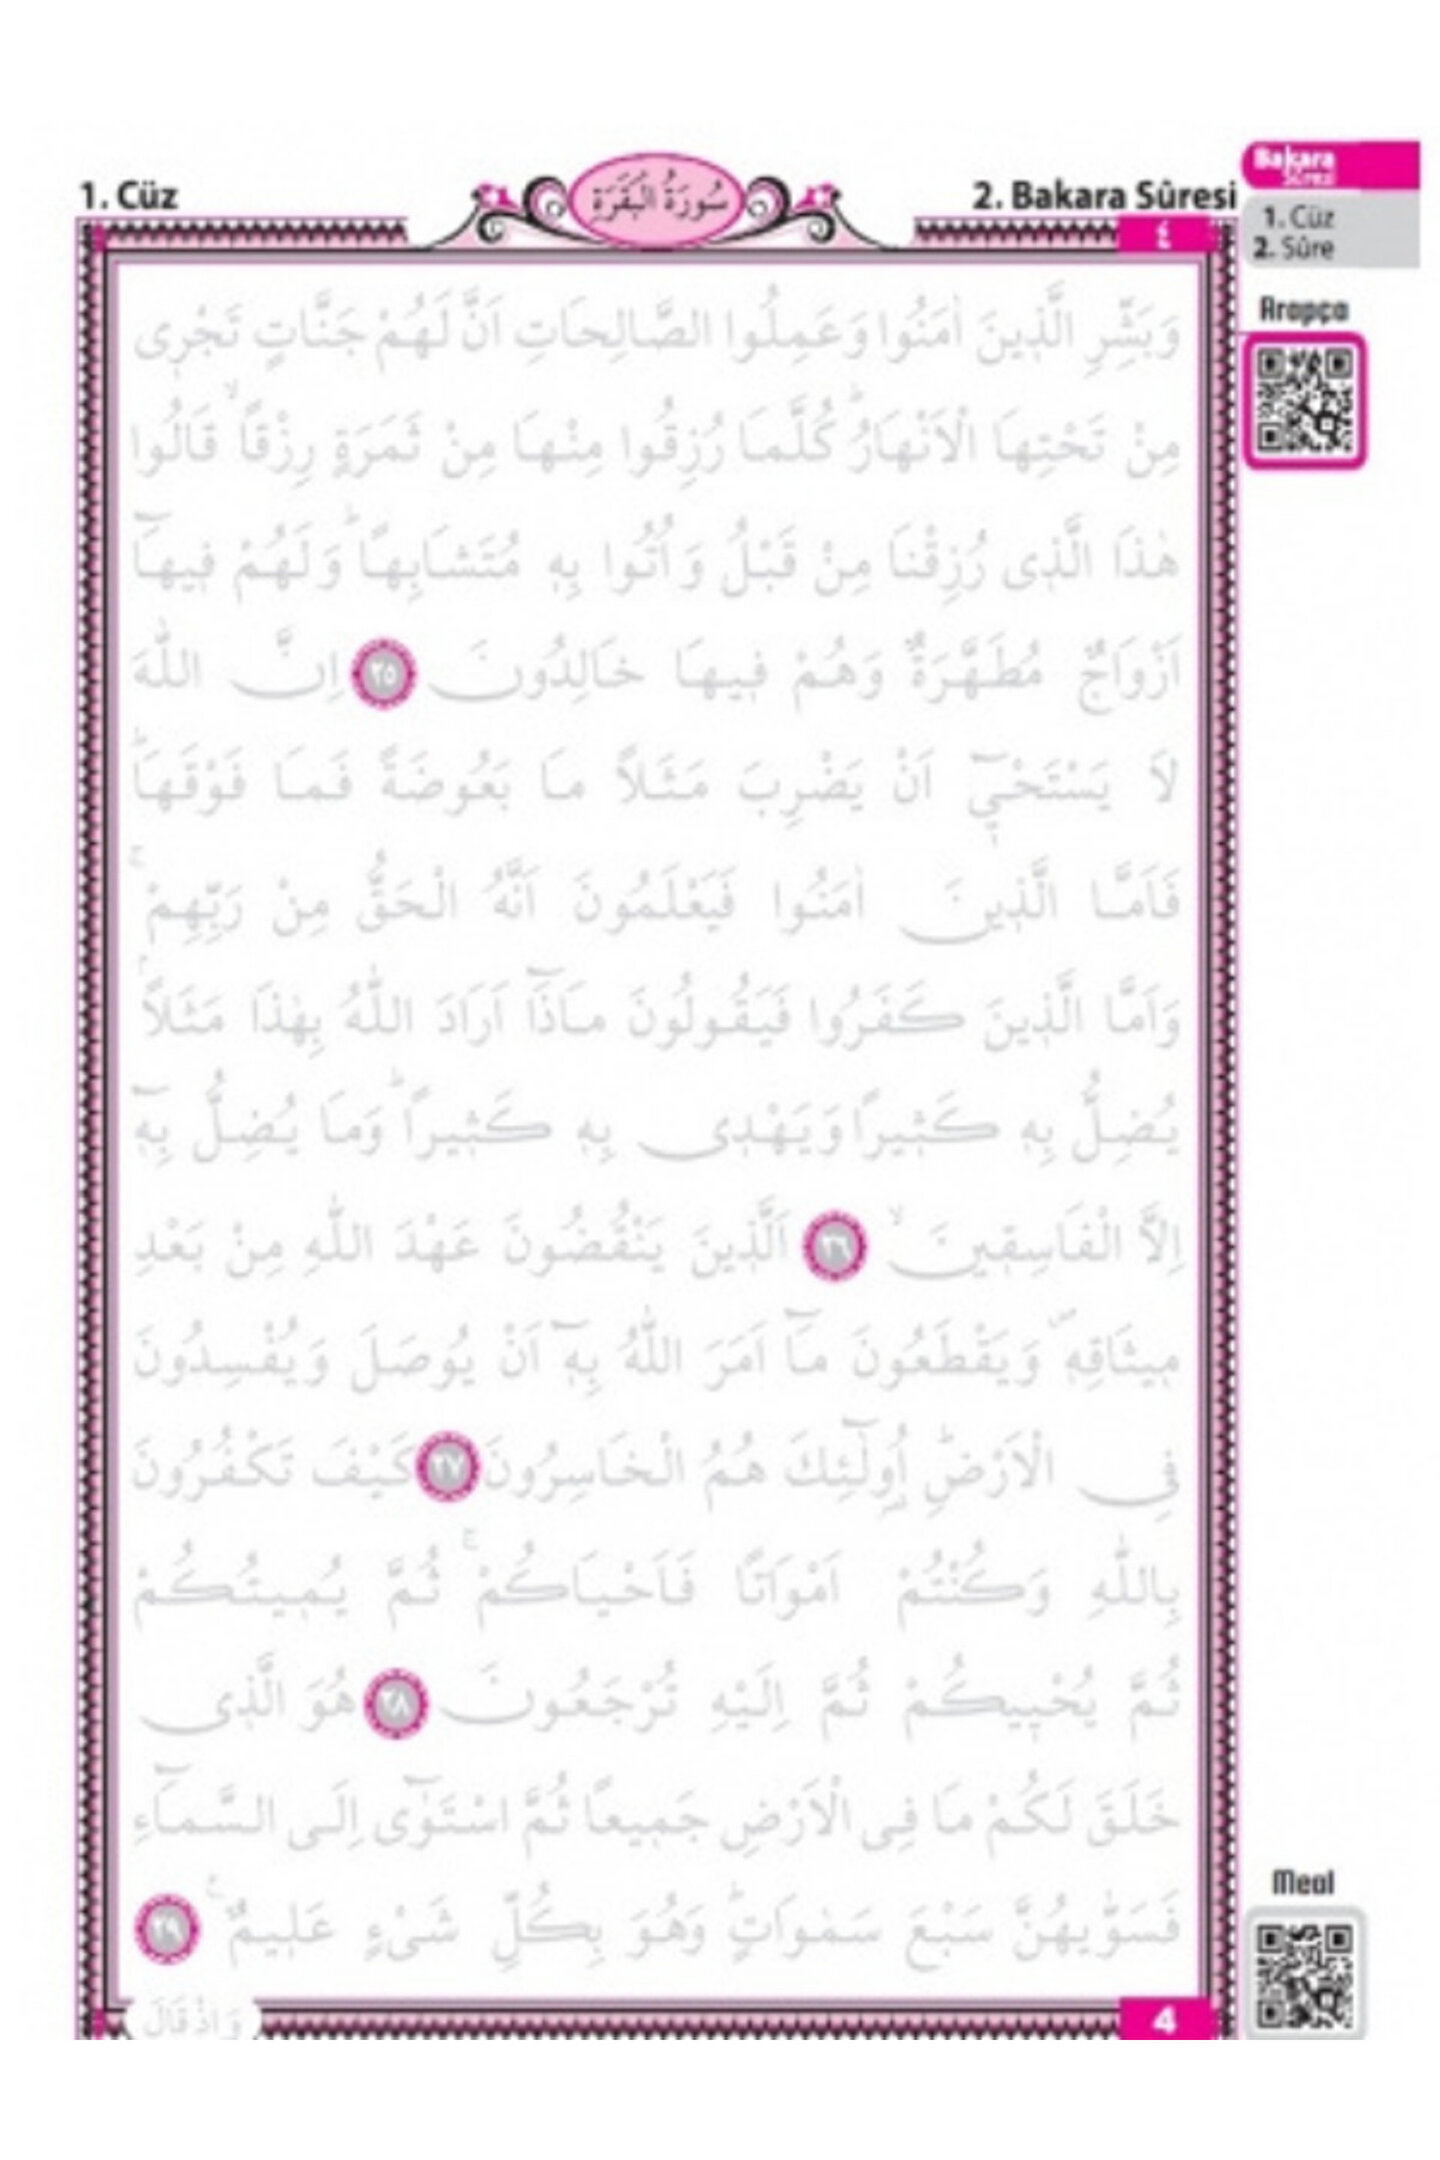 1. Cüz
سُورَةُ الْبَقَرَةِ
2. Bakara Sûresi
٤
Bakara
Sûresi
1. Cüz
2. Sûre
Arapça
وَبَشِّرِ الَّذٖينَ اٰمَنُوا وَعَمِلُوا الصَّالِحَاتِ اَنَّ لَهُمْ جَنَّاتٍ تَجْرٖى
مِنْ تَحْتِهَا الْاَنْهَارُؕ كُلَّمَا رُزِقُوا مِنْهَا مِنْ ثَمَرَةٍ رِزْقًاۙ قَالُوا
هٰذَا الَّذٖى رُزِقْنَا مِنْ قَبْلُ وَاُتُوا بِهٖ مُتَشَابِهًاؕ وَلَهُمْ فٖيهَآ
اَزْوَاجٌ مُطَهَّرَةٌ وَهُمْ فٖيهَا خَالِدُونَ ٢٥ اِنَّ اللّٰهَ
لَا يَسْتَحْيٖٓ اَنْ يَضْرِبَ مَثَلًا مَا بَعُوضَةً فَمَا فَوْقَهَاؕ
فَاَمَّا الَّذٖينَ اٰمَنُوا فَيَعْلَمُونَ اَنَّهُ الْحَقُّ مِنْ رَبِّهِمْۚ
وَاَمَّا الَّذٖينَ كَفَرُوا فَيَقُولُونَ مَاذَٓا اَرَادَ اللّٰهُ بِهٰذَا مَثَلًاۢ
يُضِلُّ بِهٖ كَثٖيرًا وَيَهْدٖى بِهٖ كَثٖيرًاؕ وَمَا يُضِلُّ بِهٖٓ
اِلَّا الْفَاسِقٖينَۙ ٢٦ اَلَّذٖينَ يَنْقُضُونَ عَهْدَ اللّٰهِ مِنْ بَعْدِ
مٖيثَاقِهٖࣕ وَيَقْطَعُونَ مَٓا اَمَرَ اللّٰهُ بِهٖٓ اَنْ يُوصَلَ وَيُفْسِدُونَ
فِى الْاَرْضِؕ اُولٰٓئِكَ هُمُ الْخَاسِرُونَ ٢٧ كَيْفَ تَكْفُرُونَ
بِاللّٰهِ وَكُنْتُمْ اَمْوَاتًا فَاَحْيَاكُمْۚ ثُمَّ يُمٖيتُكُمْ
ثُمَّ يُحْيٖيكُمْ ثُمَّ اِلَيْهِ تُرْجَعُونَ ٢٨ هُوَ الَّذٖى
خَلَقَ لَكُمْ مَا فِى الْاَرْضِ جَمٖيعًا ثُمَّ اسْتَوٰٓى اِلَى السَّمَٓاءِ
فَسَوّٰيهُنَّ سَبْعَ سَمٰوَاتٍؕ وَهُوَ بِكُلِّ شَىْءٍ عَلٖيمٌۚ ٢٩
Meal
وَاِذْ قَالَ
4